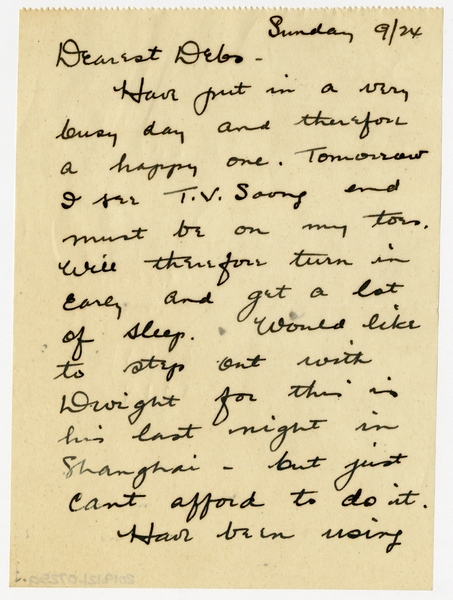 Sunday 9/24
Dearest Debs -
Have put in a very
busy day and therefore
a happy one. Tomorrow
I see T.V. Soong and
must be on my toes.
Will therefore turn in
early and get a lot
of sleep. Would like
to step out with
Dwight for this is
his last night in
Shanghai - but just
cant afford to do it.
Have been using